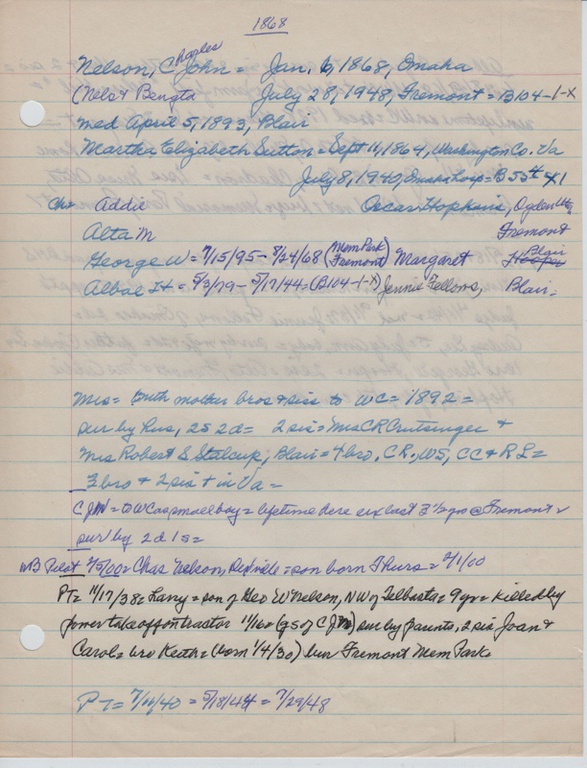 1868
Nelson, Charles John = Jan. 6, 1868, Omaha
(Nels & Bengta July 28, 1948, Fremont = B104-1-X
med April 5, 1893, Blair
Martha Elizabeth Sutton = Sept 11, 1864, Washington Co. Va
July 8, 1940, Omaha hosp = B 55 #X1
Ch= Addie Oscar Hopkins, Ogden Ut,
Alta M Fremont
George W = 7/15/95 - 8/24/68 (Mem Park Fremont) Margaret Blair
Albae H = 5/3/99 - 5/17/44 = (B104-1-X) Jennie Fellows, Blair =
Mrs = with mother bros & sis to WC = 1892 =
sur by hus, 2s 2d = 2 sis = Mrs CR Cruitsinger &
Mrs Robert S Stalcup, Blair = 4 bro, CR, WS, CC & RL =
3 bro & 2 sis in Va =
CJN = to WC as small boy = lifetime here ex last 3 1/2 yrs @ Fremont =
sur by 2d 1s =
2/5/00 = Chas Nelson, = son born Thurs = 2/1/00
PT = 11/17/38 = Larry = son of Geo W Nelson, NW of Telbasta = 9 yr = killed by
power takeoff on tractor 11/16 = (gs of CJN) sur by parents, 2 sis Joan &
Carol = bro Keith = (born 1/4/30) bur Fremont Mem Park
PT = 7/11/40 = 5/18/44 = 7/29/48